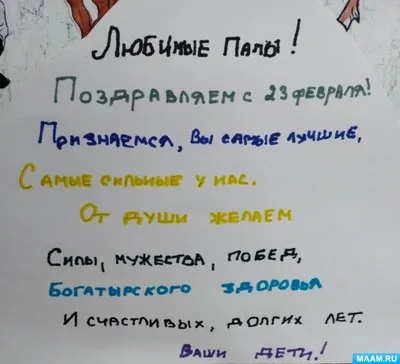 Любимые Папы!
Поздравляем с 23 февраля!
Признаемся, Вы самые лучшие,
Самые сильные у нас.
От души желаем
Силы, мужества, побед,
Богатырского здоровья
И счастливых, долгих лет.
Ваши дети!
MAAM.RU